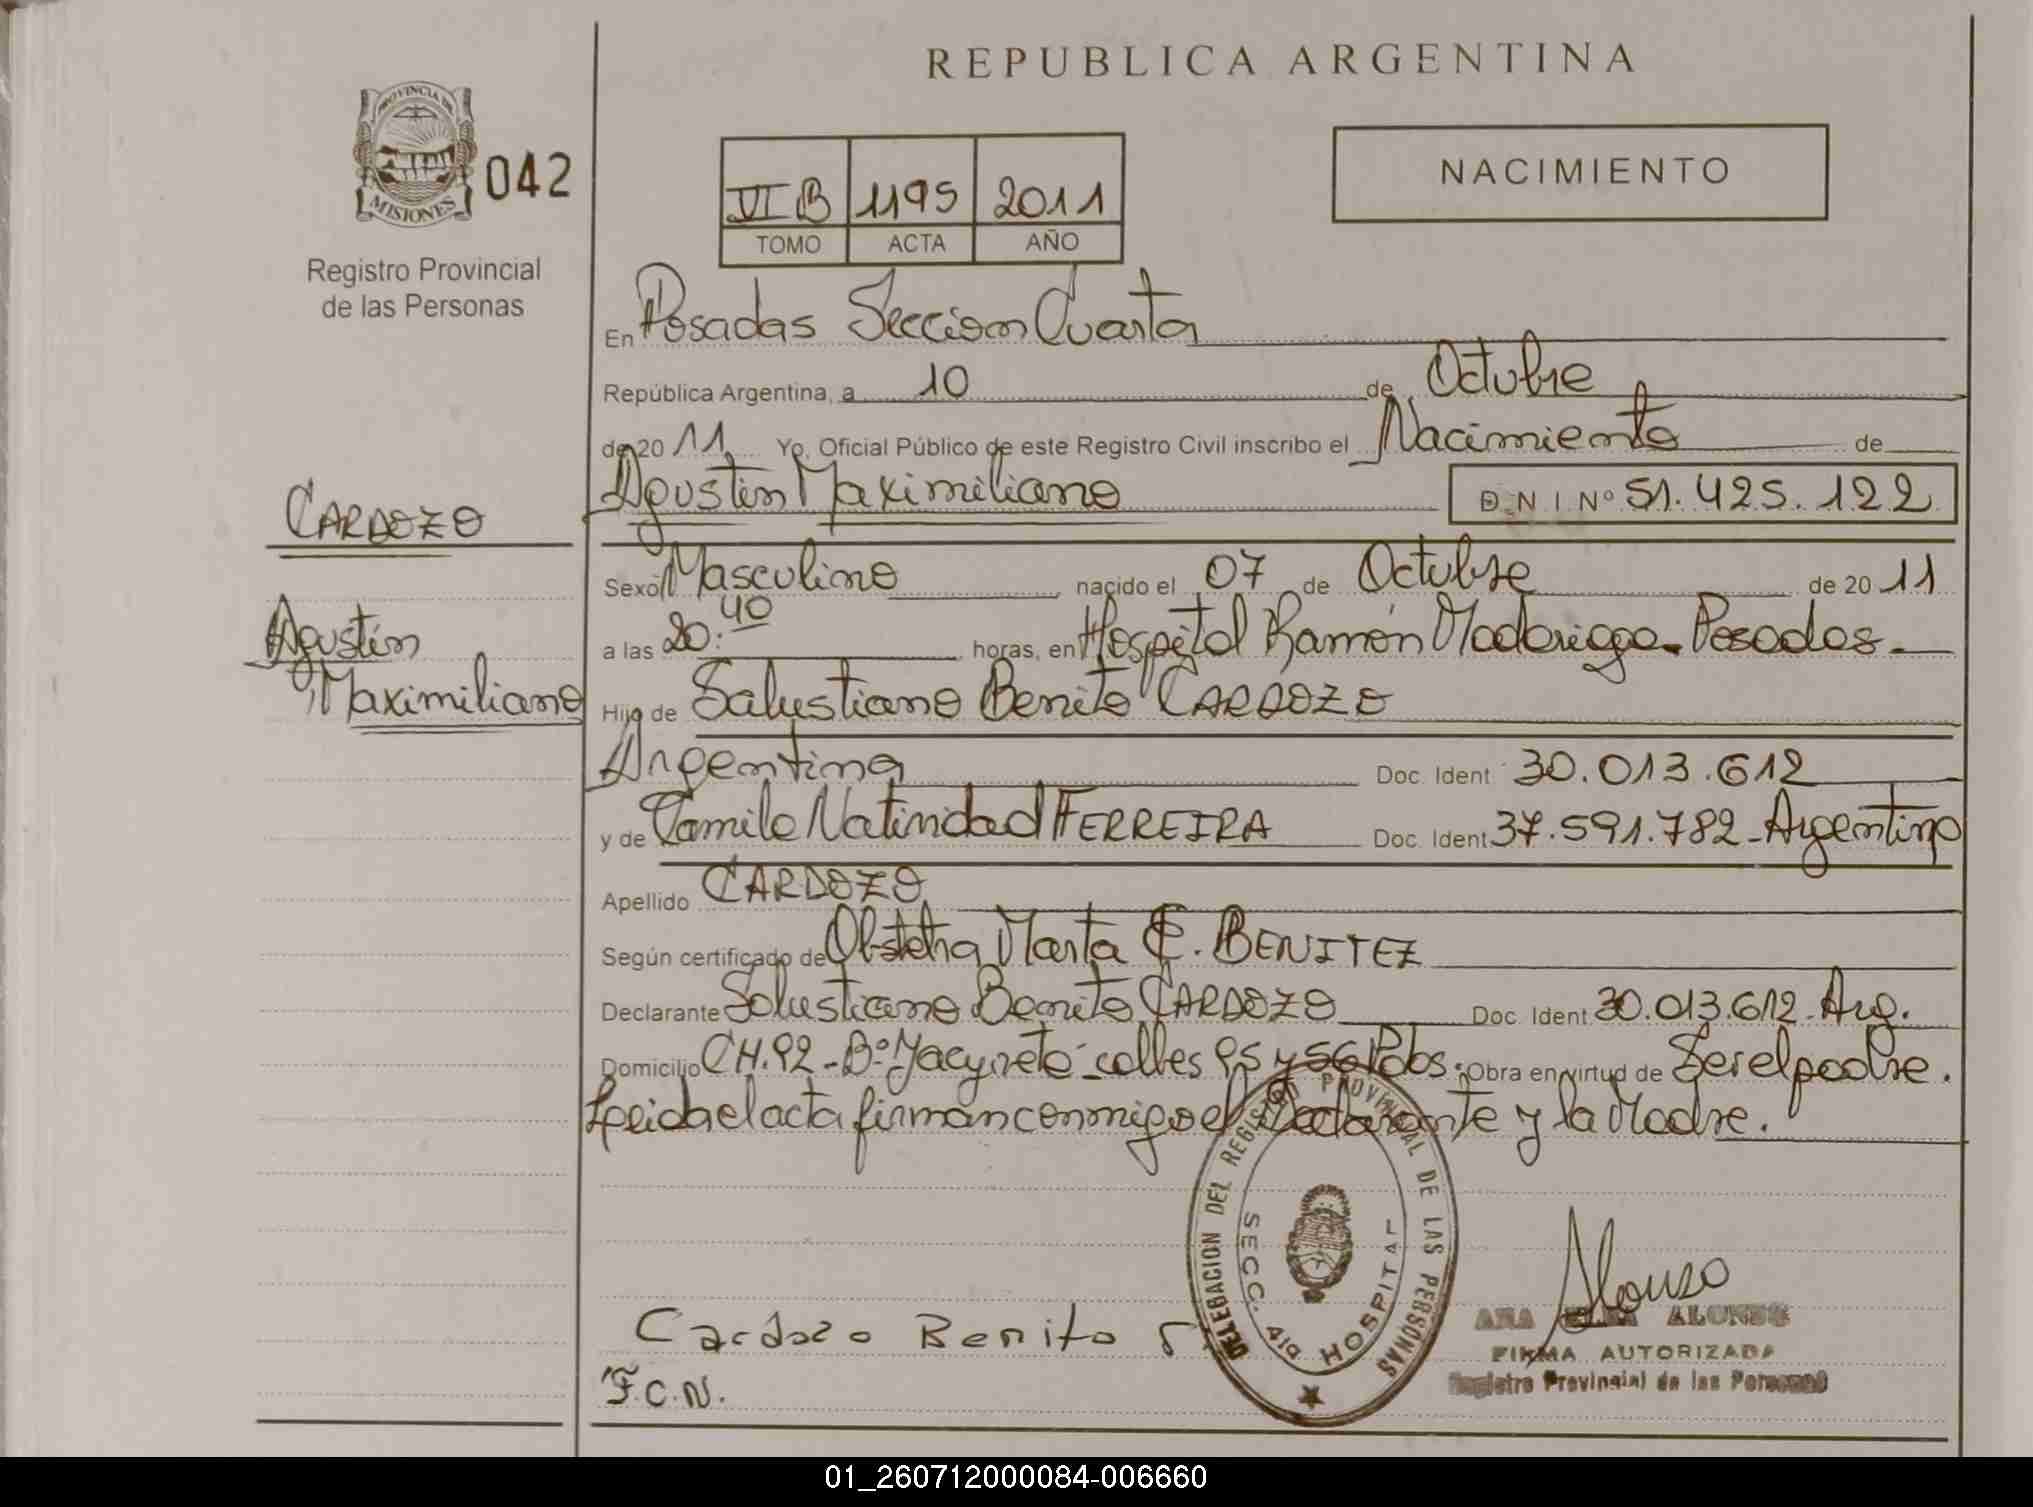 REPUBLICA ARGENTINA
PROVINCIA DE
MISIONES
042
Registro Provincial
de las Personas
VI B 1195 2011
TOMO ACTA AÑO
NACIMIENTO
En Posadas Seccion Cuarta
República Argentina, a 10 de Octubre
de 20 11 Yo, Oficial Público de este Registro Civil inscribo el Nacimiento de
Agustín Maximiliano DNI Nº 51.425.122
CARDOZO
Agustín
Maximiliano
Sexo Masculino nacido el 07 de Octubre de 20 11
a las 20:40 horas, en Hospital Ramón Madariaga - Posadas -
Hijo de Salustiano Benito CARDOZO
Argentina Doc. Ident. 30.013.612
y de Camila Natividad FERREIRA Doc. Ident. 37.591.782 - Argentina
Apellido CARDOZO
Según certificado de Obstetra Marta E. BENITEZ
Declarante Salustiano Benito CARDOZO Doc. Ident. 30.013.612 - Arg.
Domicilio CH.92 - Bº Yacyretá - calles 95 y 56 Pdas. Obra en virtud de Ser el padre.
Leida el acta firman conmigo el Declarante y la Madre.
DELEGACION DEL REGISTRO PROVINCIAL DE LAS PERSONAS
SECC. 4ta HOSPITAL
Cardozo Benito S
F.C.N.
Alonso
ANA ALONSO
FIRMA AUTORIZADA
Registro Provincial de las Personas
01_260712000084-006660